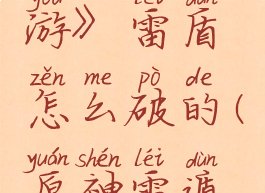 yóu léi dùn
游》雷盾
zěn me pò de
怎么破的(
yuán shén léi dùn
原神雷遁